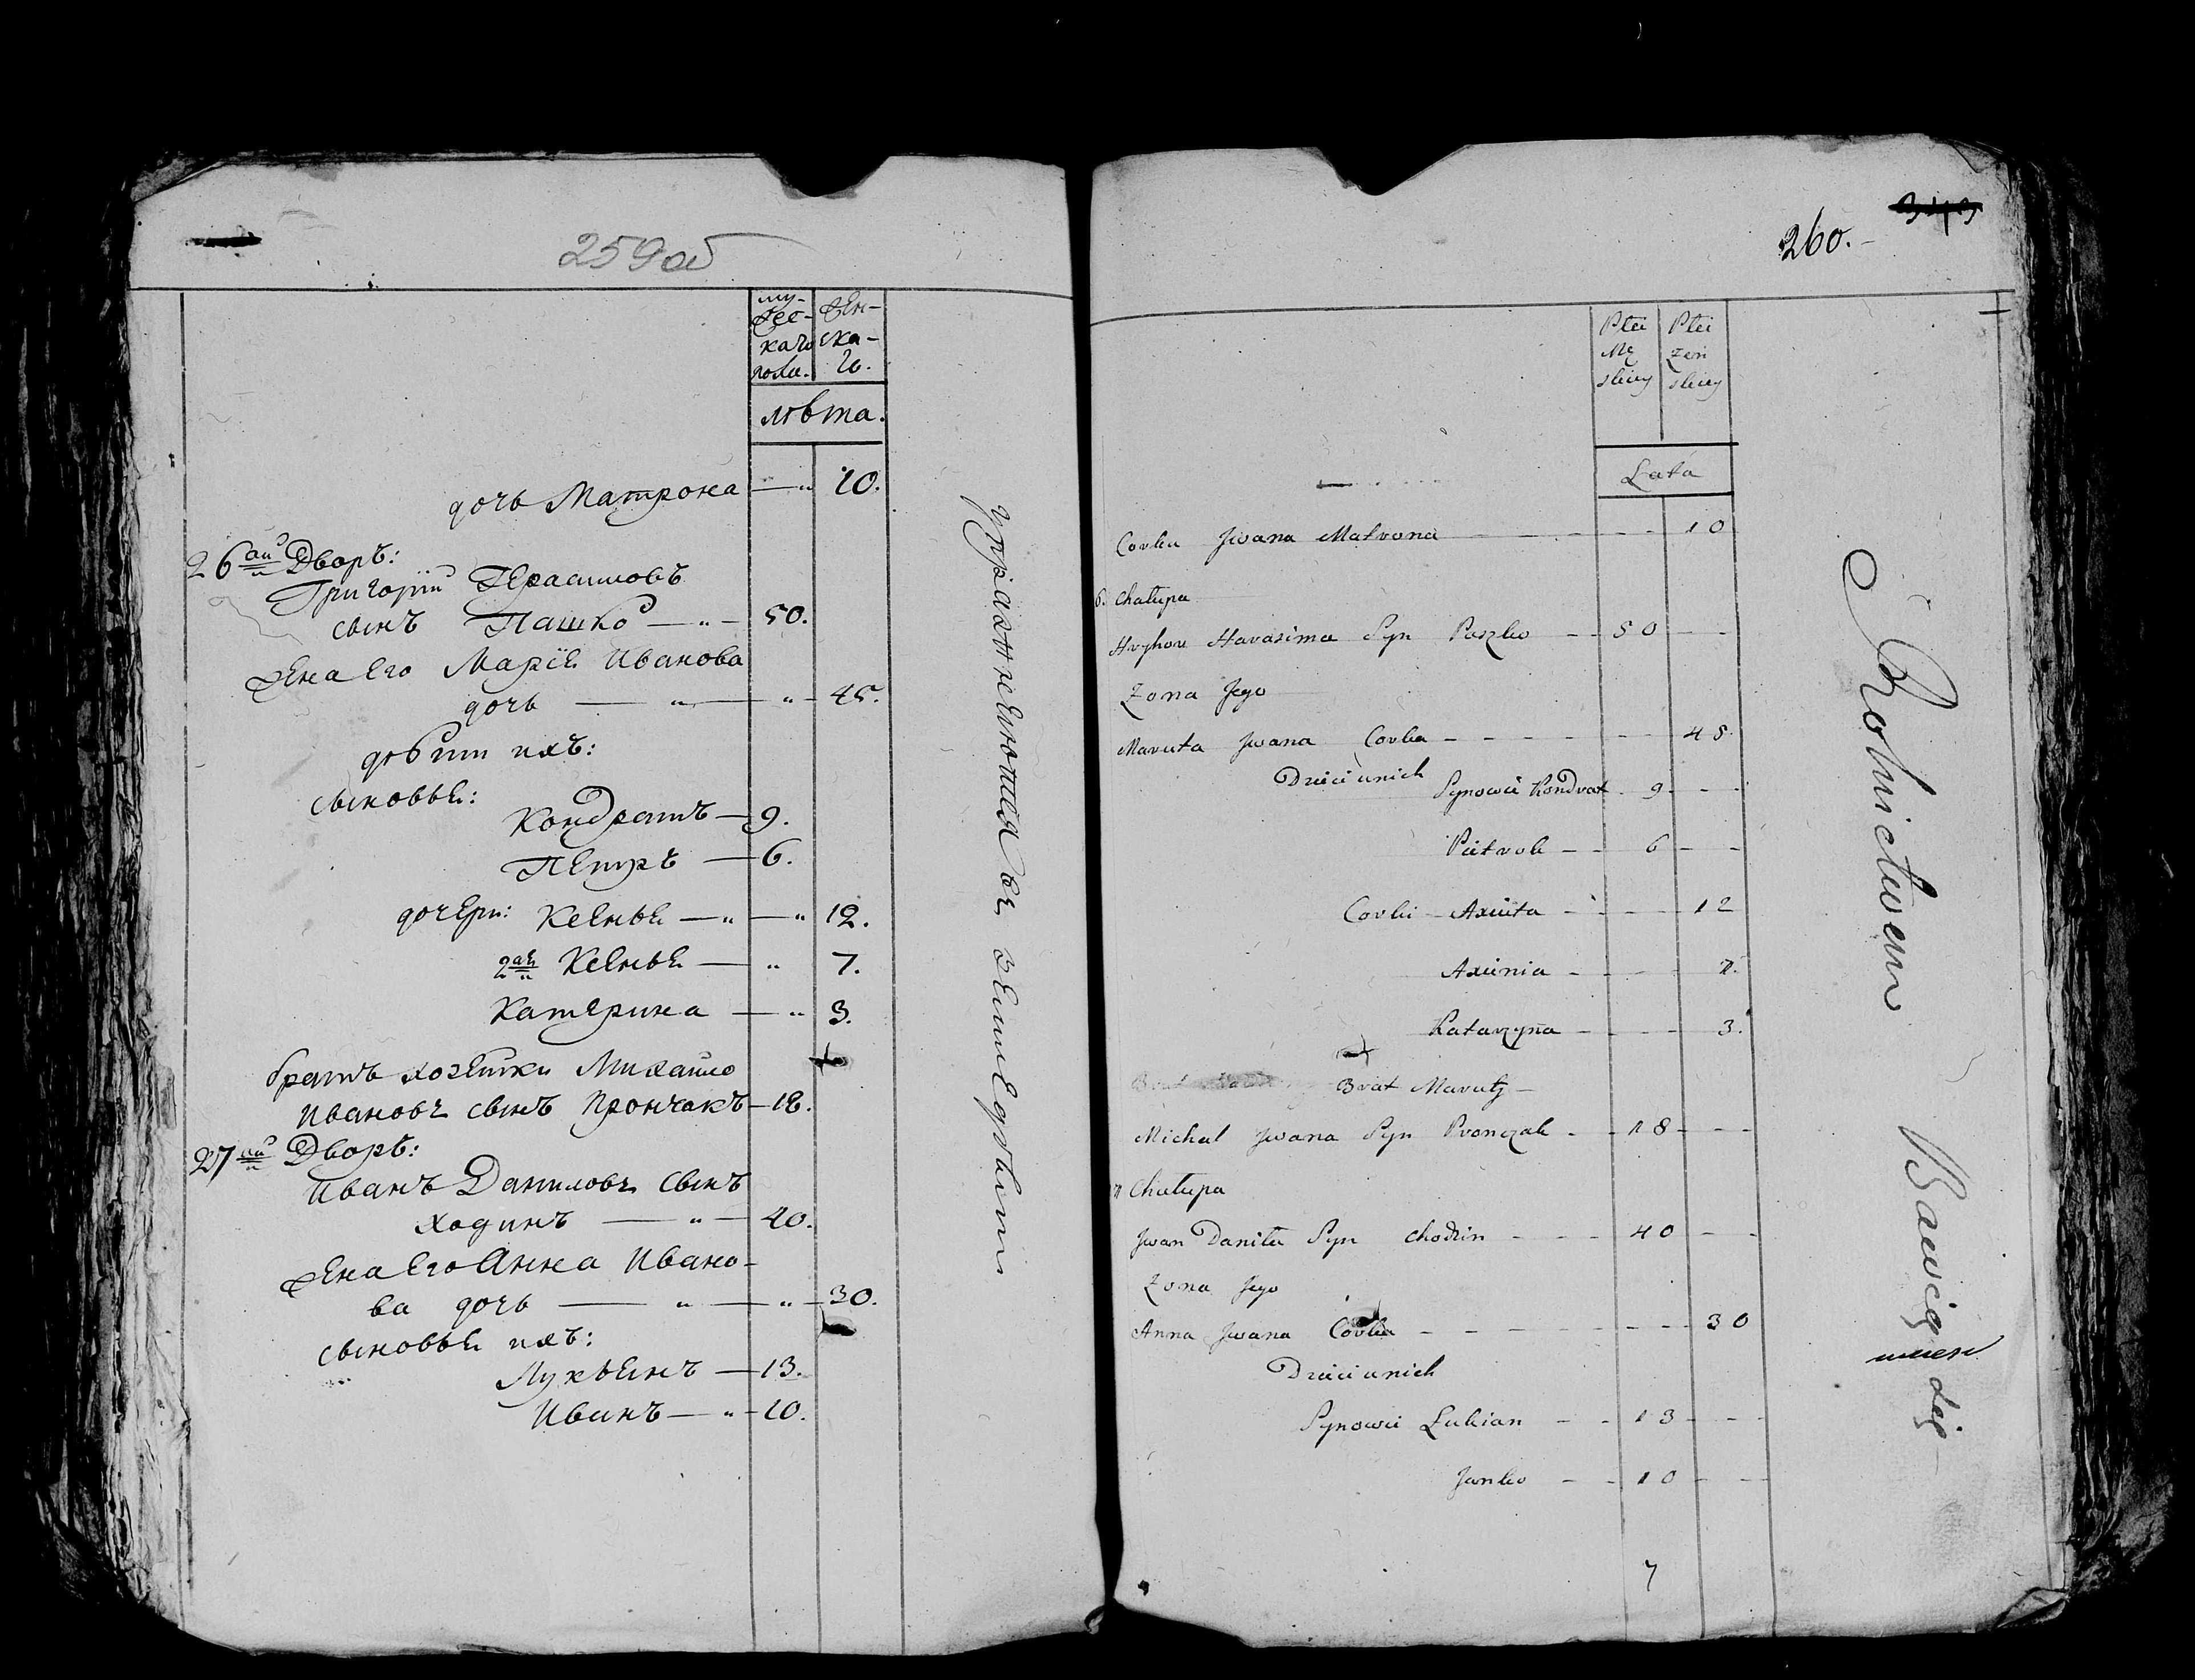 259 об
му-
жес-
каго
пола.
жен-
ска-
го.
лѣта.
дочь Матрона — „ 10.
26ай Дворъ:
Григорій Герасимовъ
сынъ Пашко — „ — 50.
жена его Марія Иванова
дочь — „ — „ — 45.
дѣти ихъ:
сыновья:
Кондратъ — 9.
Петръ — 6.
дочери: Ксенья — „ — „ 12.
2ая Ксенья — „ 7.
Катерина — „ 3.
братъ хозяйки Михайло
Ивановъ сынъ Прончакъ — 18.
27ай Дворъ:
Иванъ Даниловъ сынъ
Ходинъ — „ — 40.
жена его Анна Ивано-
ва дочь — „ — „ — 30.
сыновья ихъ:
Лукьянъ — 13.
Иванъ — „ — 10.
упражняются въ земледѣліи
260.
343
Płci
Mę
skiey
Płci
Zeń
skiey
Lata
Corka Jwana Matrona - - - 10
6. Chałupa
Hryhor Harasima Syn Paszko - - 50 - -
Zona Jego
Maruta Jwana Corka - - - - 45.
Dzieci unich Synowie Kondrat - 9 - -
Pietrok - - 6 - -
Corki - Axiuta - - - 12
Axinia - - - 7.
Katarzyna - - - 3.
Brat Maruty -
Michał Jwana Syn Pronczak - - 18 - -
7 Chałupa
Jwan Daniła Syn Chodzin - - - 40 - -
Zona Jego
Anna Jwana Corka - - - - - 30
Dzieci unich
Synowie Łukian - - 13 - -
Janko - - 10 - -
7
Rolnictwem Bawią się